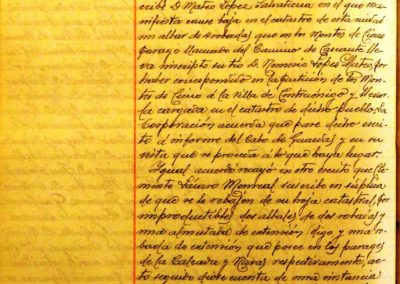 cribe D. Mateo López Salvatierra, en el que ma-
nifiesta cause baja en el catastro de esta ciudad
un albar de 9 robadas, que en los Montes de Cierzo
parage llamado del Camino de Cascante lle-
va inscripto su tío D. Nemesio López Mateo, por
haber correspondido en la partición de los Mon-
tes de Cierzo á la Villa de Cintruénigo y llevar
la cargada en el catastro de dicho pueblo, la
Corporación acuerda que pase dicho escri-
to á informe del Cabo de Guardas y en su
vista que se proceda á lo que haya lugar.
Igual acuerdo recayó en otro escrito que Cle-
mente Lázaro Monreal suscribe en súplica
de que se le rebajen de su hoja catastral, por
improductibles dos albares de dos robadas y
una almutada de extensión digo y una ro-
bada de extensión que posee en los parages
de la Calzada y Navas respectivamente, ac-
to seguido dióse cuenta de una instancia